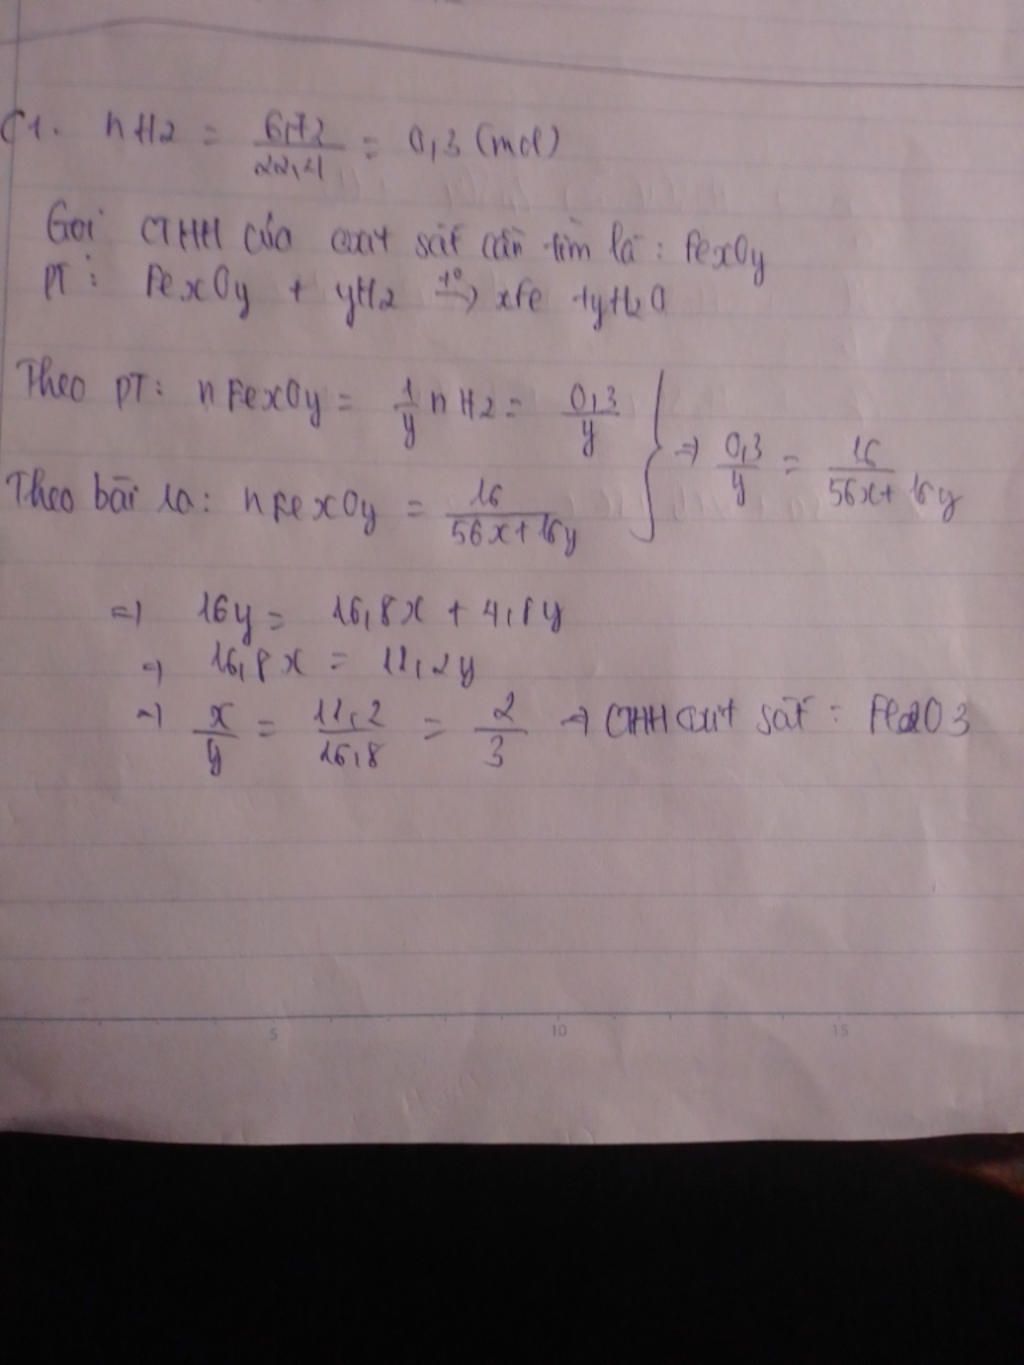 C1. nH2 = 6,72/22,4 = 0,3 (mol)
Gọi CTHH của oxit sắt cần tìm là : FexOy
PT : FexOy + yH2 t°→ xFe + yH2O
Theo PT: nFexOy = 1/y nH2 = 0,3/y
Theo bài ra: nFexOy = 16/56x+16y } => 0,3/y = 16/56x+16y
=> 16y = 16,8x + 4,8y
=> 16,8x = 11,2y
=> x/y = 11,2/16,8 = 2/3 => CTHH oxit sắt : Fe2O3
5 10 15